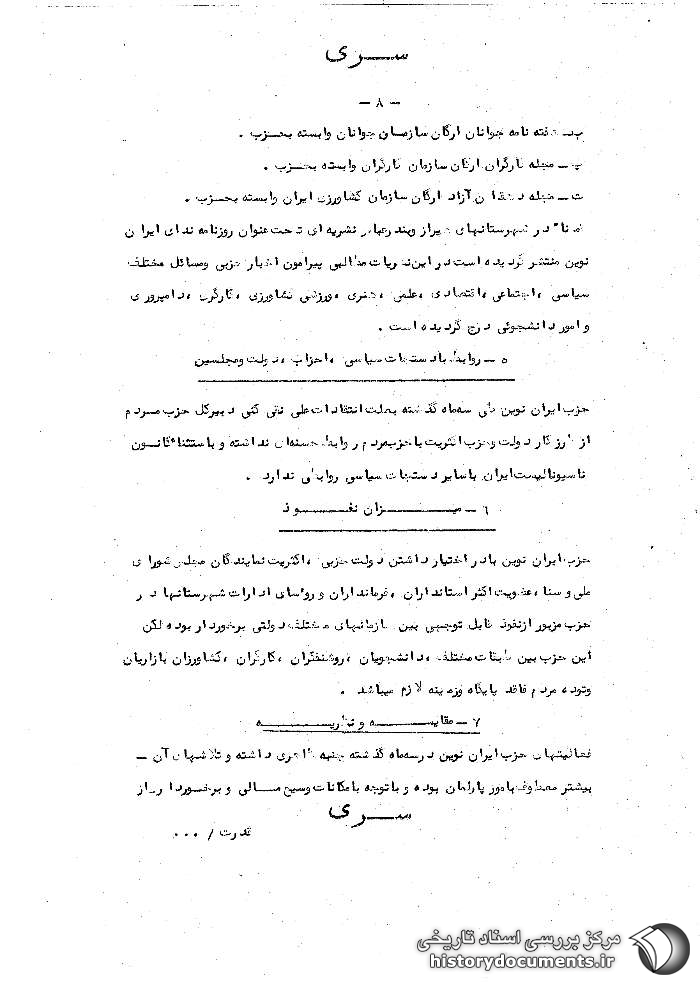 ســری
- ۸ -
ب ـ هفته نامه جوانان ارگان سازمان جوانان وابسته بحزب .
پ ـ مجله کارگران ارگان سازمان کارگران وابسته بحزب .
ت ـ مجله دهقانان آزاد ارگان سازمان کشاورزی ایران وابسته بحزب .
ضمنا" در شهرستانهای شیراز وبندرعباس نشریه ای تحت عنوان روزنامه ندای ایران
نوین منتشر گردیده است در این نشریات مطالبی پیرامون اخبار حزبی ومسائل مختلف
سیاسی ، اجتماعی ، اقتصادی ، علمی ، هنری ، ورزشی کشاورزی ، کارگری ، دامپروری
و امور دانشجوئی درج گردیده است .
۵ ـ روابط با دستجات سیاسی ، احزاب ، دولت ومجلسین
حزب ایران نوین طی سه‌ماه گذشته بعلت انتقادات علی نقی کنی دبیرکل حزب مردم
از طرز کار دولت وحزب اکثریت با حزب‌مردم روابط حسنه‌ای نداشته و باستثنا" کانون
ناسیونالیست ایران با سایر دستجات سیاسی روابطی ندارد .
۶ ـ میــزان نفـــوذ
حزب ایران نوین با در اختیار داشتن دولت حزبی ، اکثریت نمایندگان مجلس شورای
ملی و سنا ، عضویت اکثر استانداران ، فرمانداران و روسای ادارات شهرستانها در
حزب مزبور از نفوذ قابل توجهی بین سازمانهای مختلف دولتی برخوردار بوده لکن
این حزب بین طبقات مختلف ، دانشجویان ، روشنفکران ، کارگران ، کشاورزان بازاریان
وتوده مردم فاقد پایگاه وزمینه لازم میباشد .
۷ ـ مقایســـه و نظریـــه
فعالیتهای حزب ایران نوین در سه‌ماه گذشته جنبه ظاهری داشته و تلاشهای آن ـ
بیشتر معطوف بامور پارلمان بوده و با توجه بامکانات وسیع مــالی و برخــوردار از
ســری
قدرت / ۰۰۰
مرکز بررسی اسناد تاریخی
historydocuments.ir